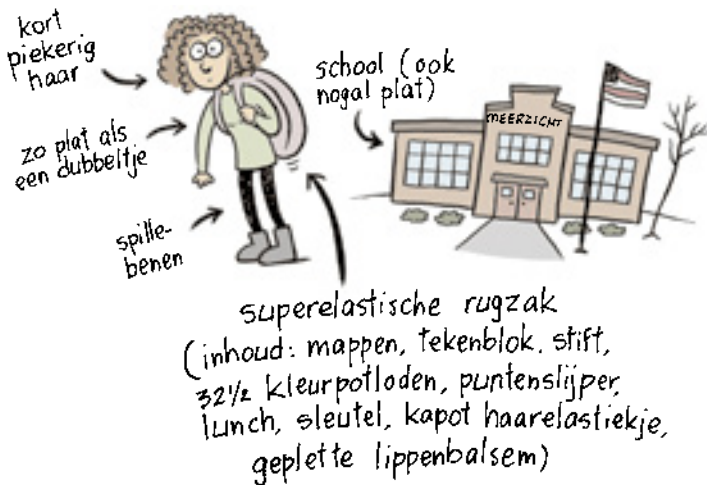 kort
piekerig
haar
zo plat als
een dubbeltje
spille-
benen
school (ook
nogal plat)
MEERZICHT
superelastische rugzak
(inhoud: mappen, tekenblok, stift,
32 1/2 kleurpotloden, puntenslijper,
lunch, sleutel, kapot haarelastiekje,
geplette lippenbalsem)